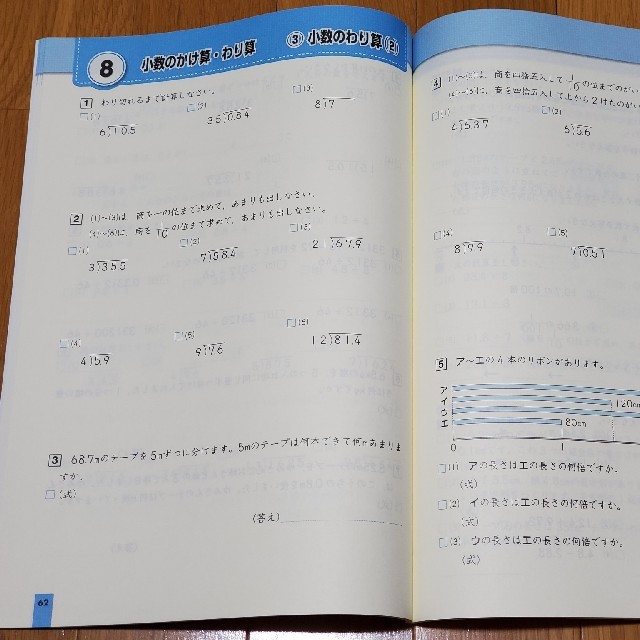 8
小数のかけ算・わり算
③ 小数のわり算(2)
1 わり切れるまで計算しなさい。
(1)
(2)
(3)
8)7
2 (1)~(3)は、商を一の位まで求めて、あまりも出しなさい。
(4)~(6)に、商を 1/10 の位まで求めて、あまりも出しなさい。
(1)
(2)
(3)
3)35.5
7)58.4
21)67.9
(4)
(5)
(6)
4)5.9
12)81.4
3 68.7mのテープを5mずつに分てます。5mのテープは何本できて何mあまりま
すか。
(式)
(答え)
62
4
商を四捨五入して 1/10 の位まで
商を四捨五入して上から2けたの
(1)
(2)
(4)
(5)
8)7.9
5 ア~エの4本のリボンがあります。
ア
イ
ウ
エ
120cm
80cm
0
1
(1) アの長さはエの長さの何倍ですか。
(式)
(2) イの長さはエの長さの何倍ですか。
(式)
(3) ウの長さはエの長さの何倍ですか。
(式)